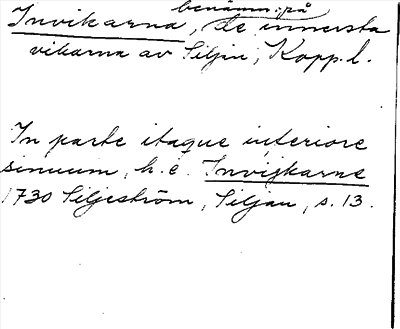 benämn. på
Invikarna, de innersta
vikarna av Siljan, Kopp. l.
In parte itaque interiore
sinuum, h. e. Invijkarne
1730 Siljeström, Siljan, s. 13.